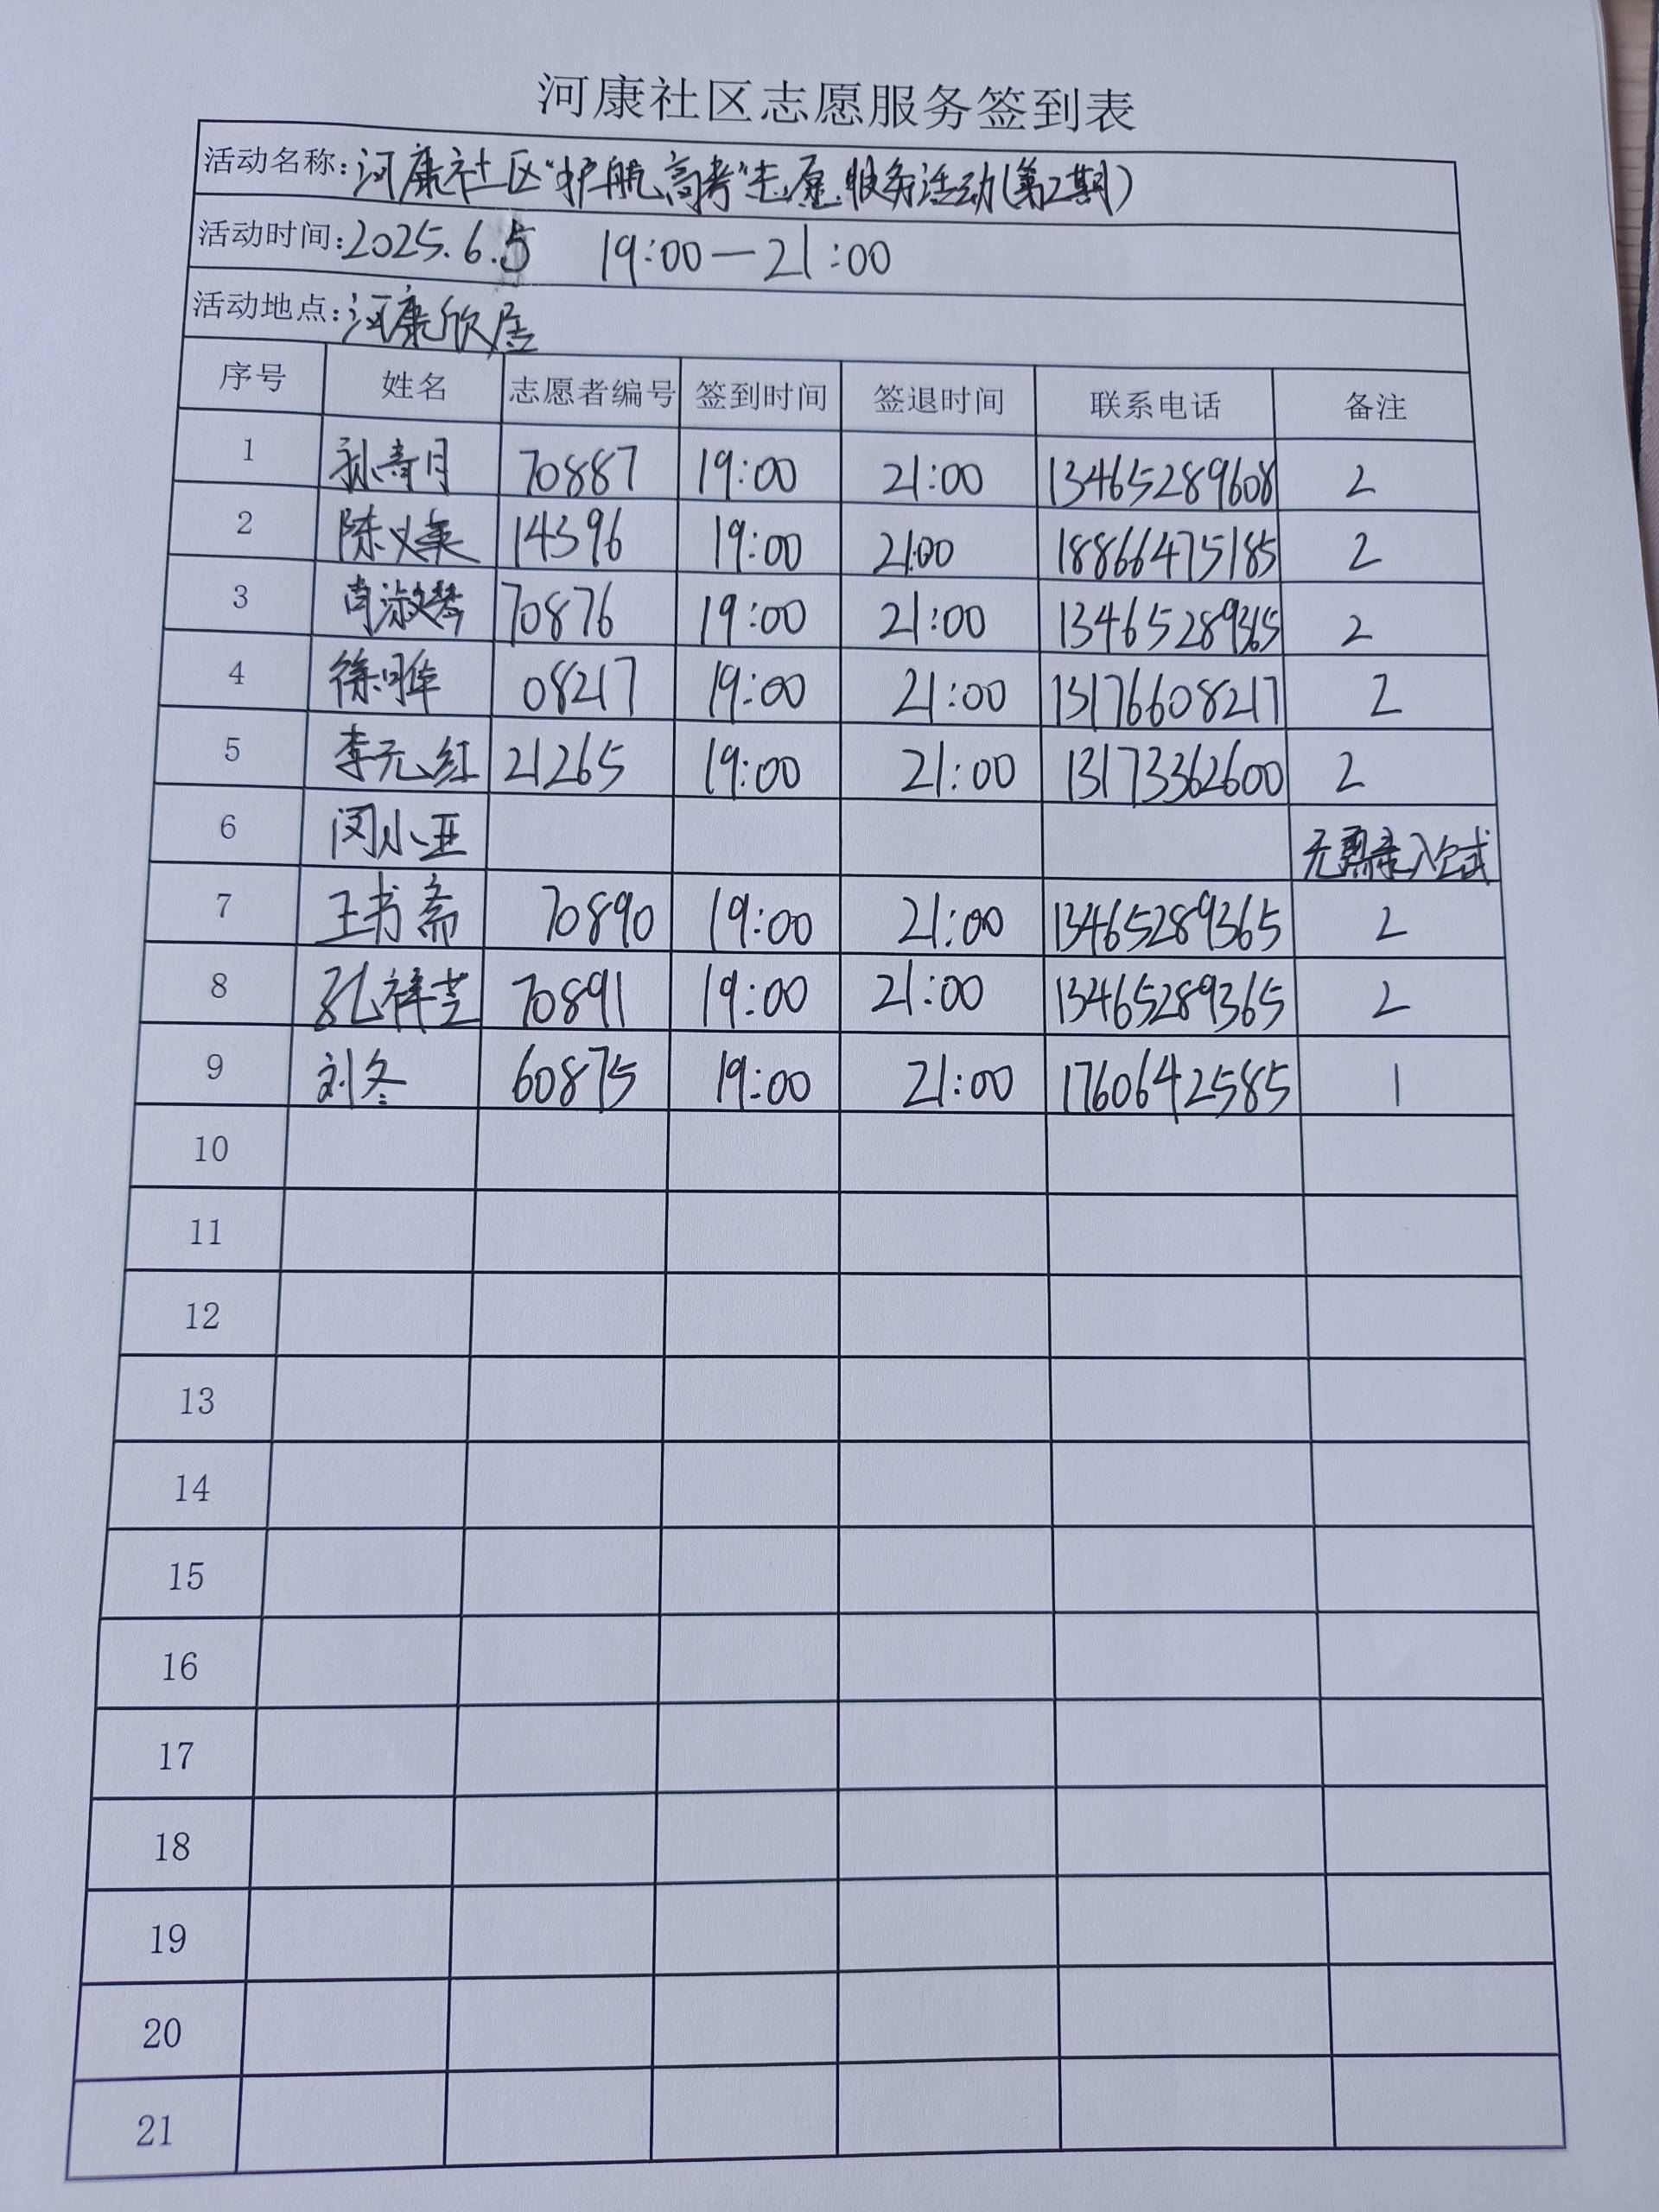 河康社区志愿服务签到表
活动名称:河康社区"护航高考"志愿服务活动(第2期)
活动时间:2025.6.5 19:00—21:00
活动地点:河康欣居
序号 姓名 志愿者编号 签到时间 签退时间 联系电话 备注
1 孙青月 70887 19:00 21:00 13465289608 2
2 陈义英 14396 19:00 21:00 18866475185 2
3 肖淑琴 70876 19:00 21:00 13465289365 2
4 徐明华 08217 19:00 21:00 13176608217 2
5 李元红 21265 19:00 21:00 13173362600 2
6 闵小亚 无需录入公式
7 王书斋 70890 19:00 21:00 13465289365 2
8 孔祥芝 70891 19:00 21:00 13465289365 2
9 刘冬 60875 19:00 21:00 1760642585 1
10
11
12
13
14
15
16
17
18
19
20
21